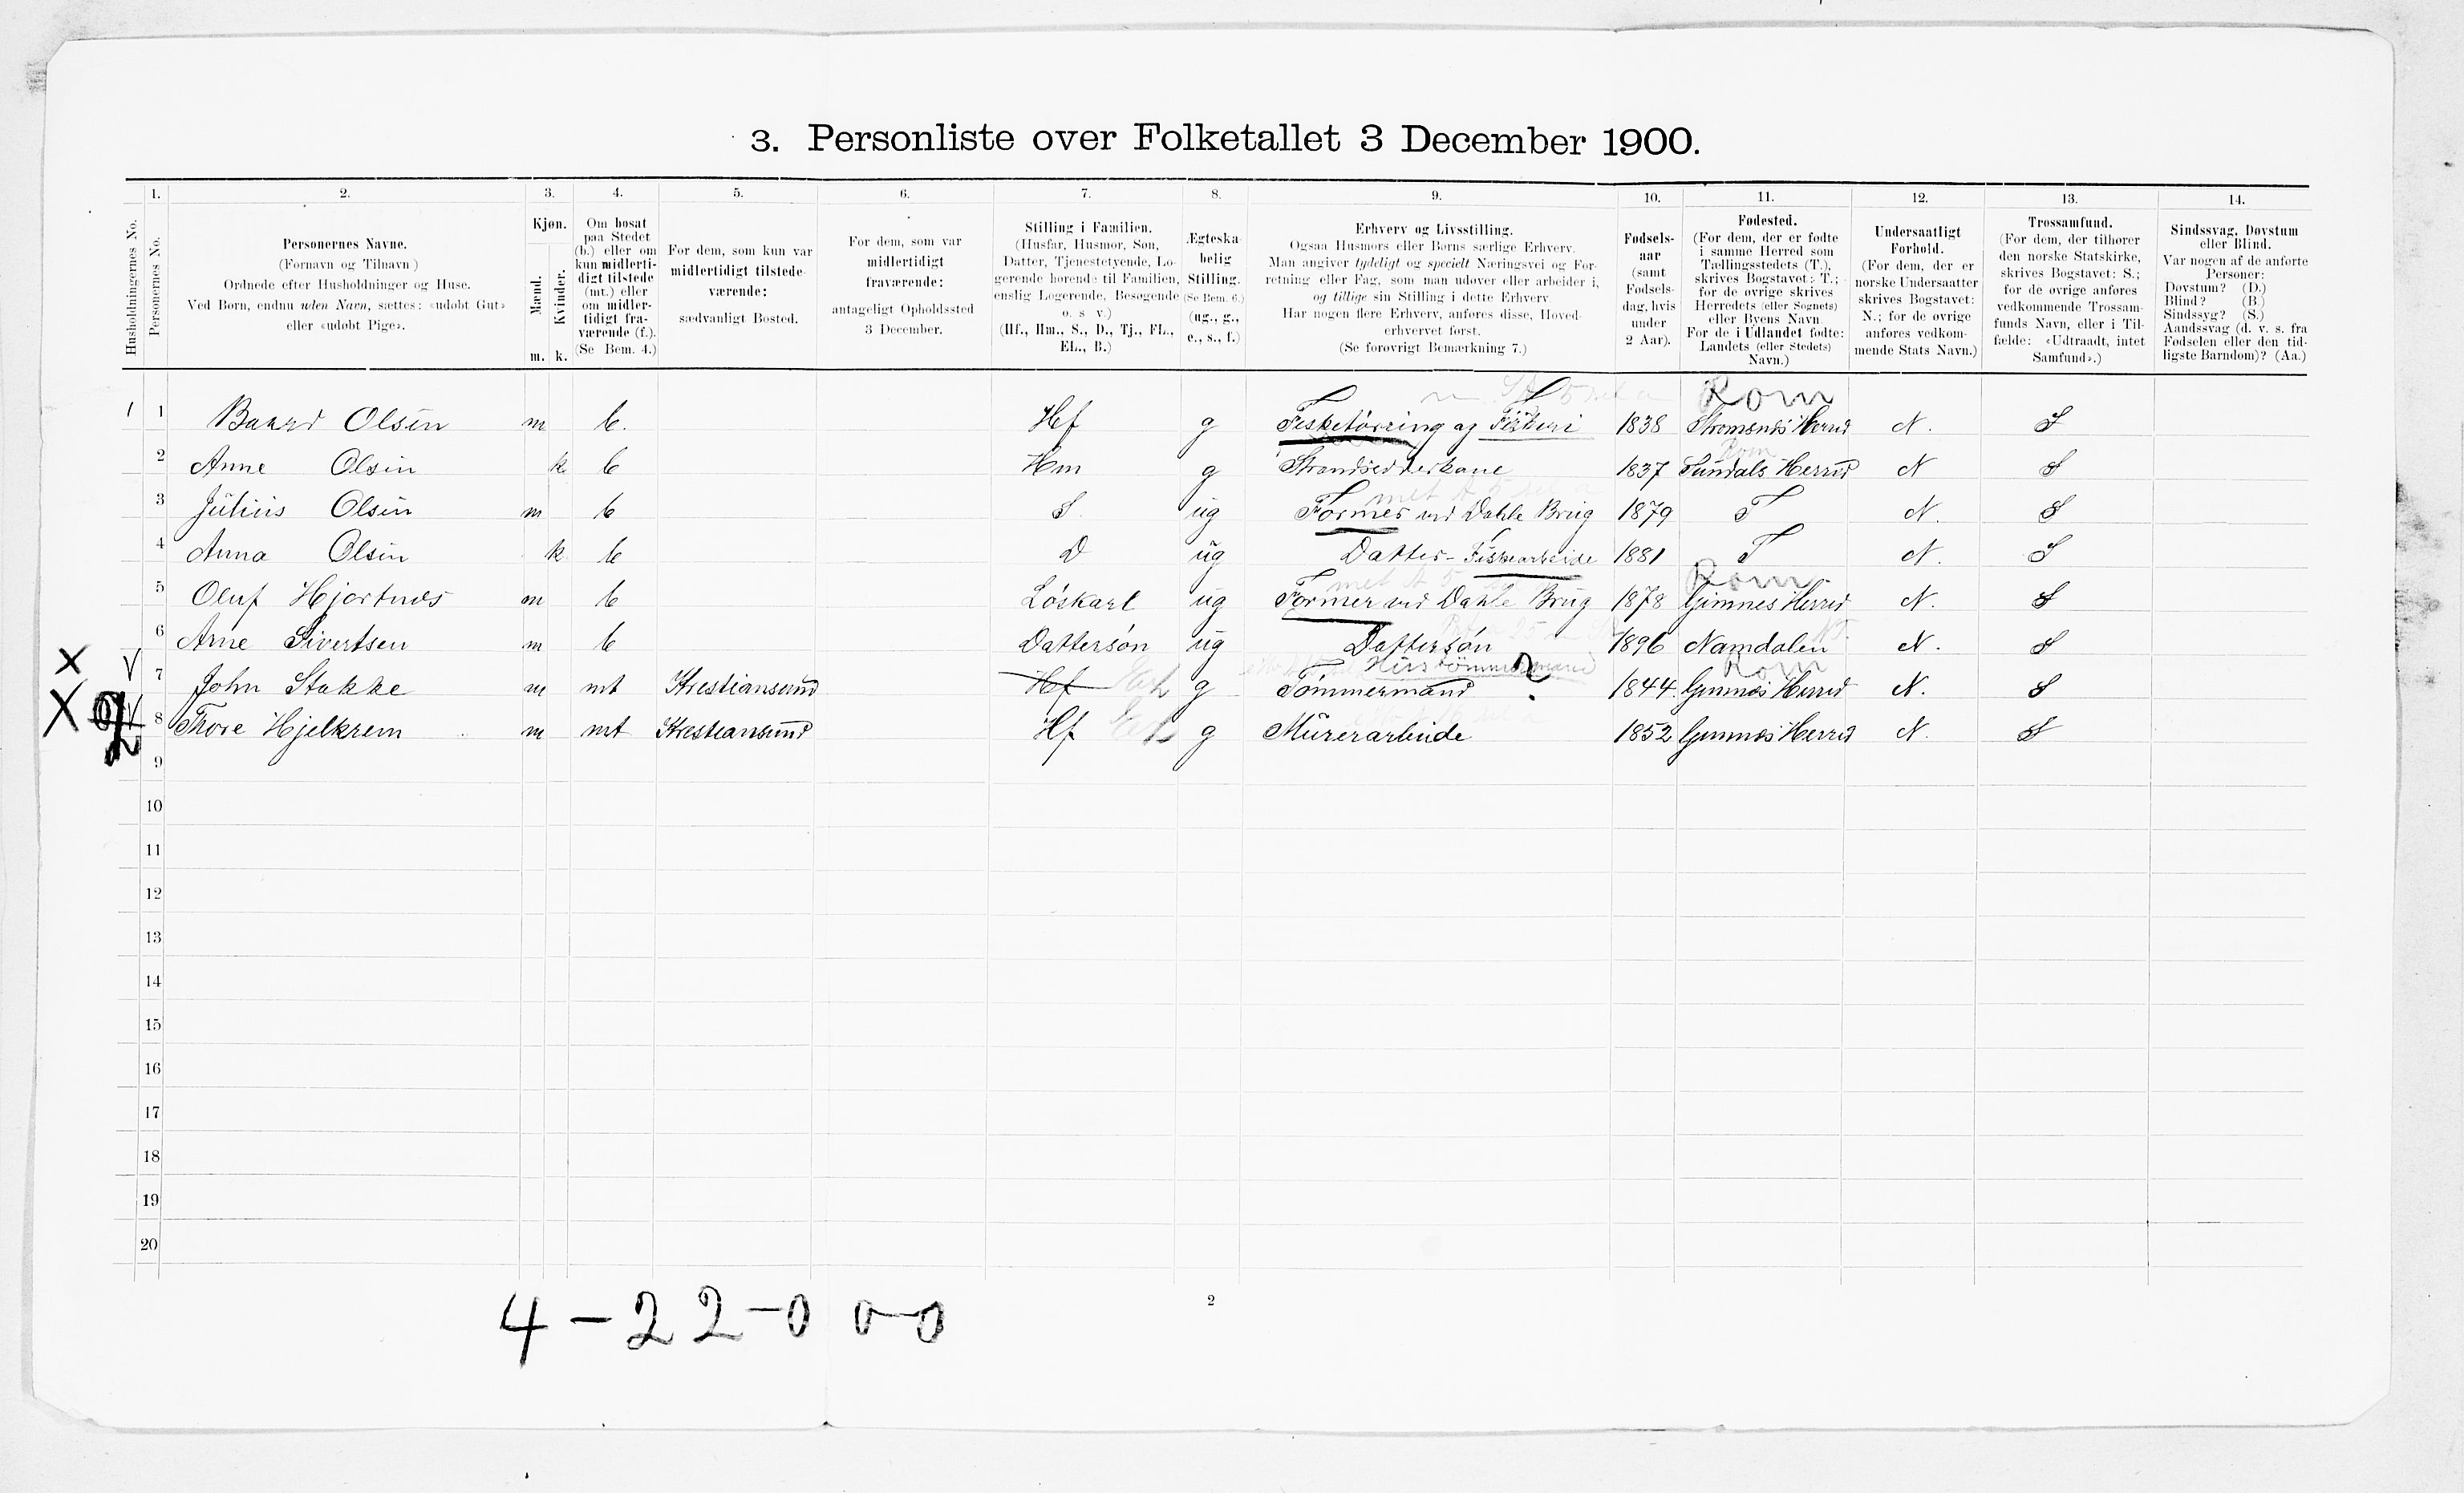 3. Personliste over Folketallet 3 December 1900.
1. 2. 3. 4. 5. 6. 7. 8. 9. 10. 11. 12. 13. 14.
Husholdningernes No.
Personernes No.
Personernes Navne.
(Fornavn og Tilnavn)
Ordnede efter Husholdninger og Huse.
Ved Børn, endnu uden Navn, sættes: «udøbt Gut»
eller «udøbt Pige».
Kjøn.
Mænd.
Kvinder.
m. k.
Om bosat
paa Stedet
(b.) eller om
kun midlerti-
digt tilstede
(mt.) eller
om midler-
tidigt fra-
værende (f.).
(Se Bem. 4.)
For dem, som kun var
midlertidigt tilstede-
værende:
sædvanligt Bosted.
For dem, som var
midlertidigt
fraværende:
antageligt Opholdssted
3 December.
Stilling i Familien.
(Husfar, Husmor, Søn,
Datter, Tjenestetyende, Lo-
gerende hørende til Familien,
enslig Logerende, Besøgende
o. s. v.)
(Hf., Hm., S., D., Tj., FL.,
EL., B.)
Ægteska-
belig
Stilling.
(Se Bem. 6.)
(ug., g.,
e., s., f.)
Erhverv og Livsstilling.
Ogsaa Husmors eller Børns særlige Erhverv.
Man angiver tydeligt og specielt Næringsvei og For-
retning eller Fag, som man udøver eller arbeider i,
og tillige sin Stilling i dette Erhverv.
Har nogen flere Erhverv, anføres disse, Hoved-
erhvervet først.
(Se forøvrigt Bemærkning 7.)
Fødsels-
aar
(samt
Fødsels-
dag, hvis
under
2 Aar).
Fødested.
(For dem, der er fødte
i samme Herred som
Tællingsstedets (T.),
skrives Bogstavet: T.;
for de øvrige skrives
Herredets (eller Sognets)
eller Byens Navn.
For de i Udlandet fødte:
Landets (eller Stedets)
Navn.)
Undersaatligt
Forhold.
(For dem, der er
norske Undersaatter
skrives Bogstavet:
N.; for de øvrige
anføres vedkom-
mende Stats Navn.)
Trossamfund.
(For dem, der tilhører
den norske Statskirke,
skrives Bogstavet: S.;
for de øvrige anføres
vedkommende Trossam-
funds Navn, eller i Til-
fælde: «Udtraadt, intet
Samfund».)
Sindssvag, Døvstum
eller Blind.
Var nogen af de anførte
Personer:
Døvstum? (D.)
Blind? (B.)
Sindssyg? (S.)
Aandssvag (d. v. s. fra
Fødselen eller den tid-
ligste Barndom)? (Aa.)
Rom
1 1 Baard Olsen m b. Hf g Fisketörring og Fiskeri 1838 Stromsnes Herred N. S
Rom
2 Anne Olsen k b Hm g Strandsidderkone 1837 Sundals Herred N S
3 Julius Olsen m b S. ug Former ved Dahle Brug 1879 T N. S
4 Anna Olsen k b D ug Datter - Fiskearbeide 1881 T N. S
Rom
5 Oluf Hjortnæs m b Löskarl ug Former ved Dahle Brug 1878 Gimnes Herred N. S
6 Arne Sivertsen m b Dattersön ug Dattersön 1896 Namdalen N. S
Hustömmermand
Rom
x v 7 John Stokke m mt Kristiansund Hf g Tömmermand ? 1844. Gimnes Herred N. S
X v 8 Thore Hjelkrem m mt Kristiansund Hf g Murerarbeide 1852 Gimnes Herred N. S
2
9
10
11
12
13
14
15
16
17
18
19
20
4 - 2 2 - 0 0 - 0
2